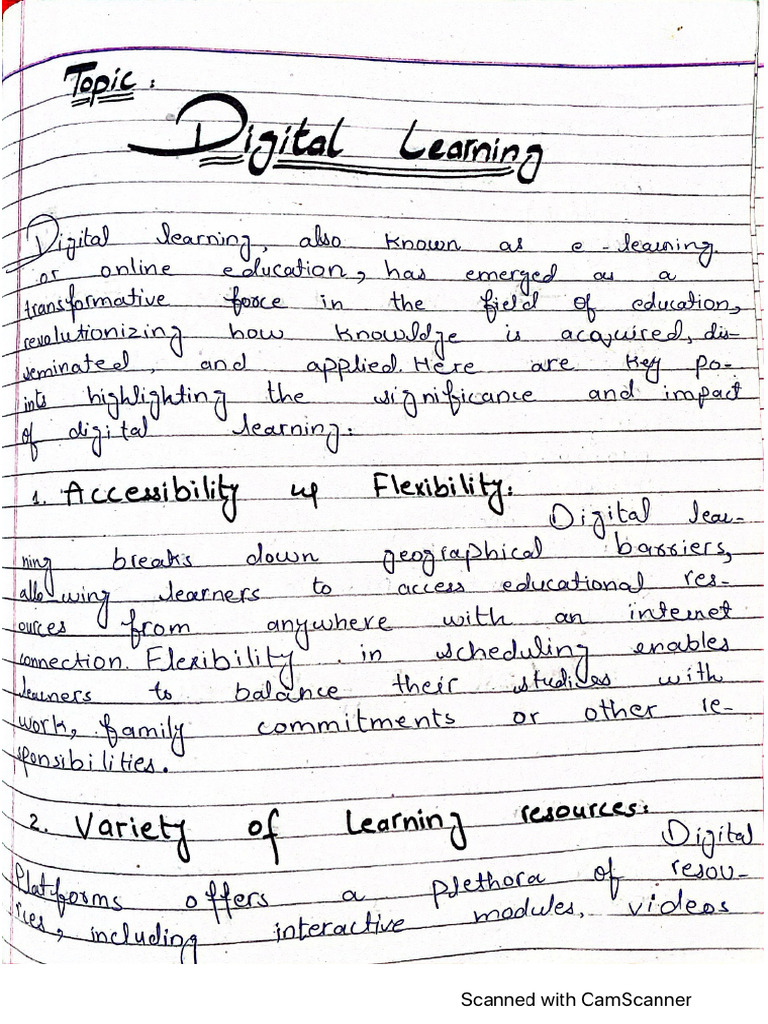 Topic :
Digital Learning
Digital learning, also known as e-learning
or online education, has emerged as a
transformative force in the field of education,
revolutionizing how knowldge is acquired, dis-
seminated, and applied. Here are key po-
ints highlighting the significance and impact
of digital learning:
1. Accessibility Flexibility:
Digital lear-
ning breaks down geographical barriers,
allowing learners to access educational res-
ources from anywhere with an internet
connection. Flexibility in scheduling enables
learners to balance their studies with
work, family commitments or other re-
sponsibilities.
2. Variety of Learning resources:
Digital
Platforms offers a plethora of resou-
rces, including interactive modules, videos
Scanned with CamScanner